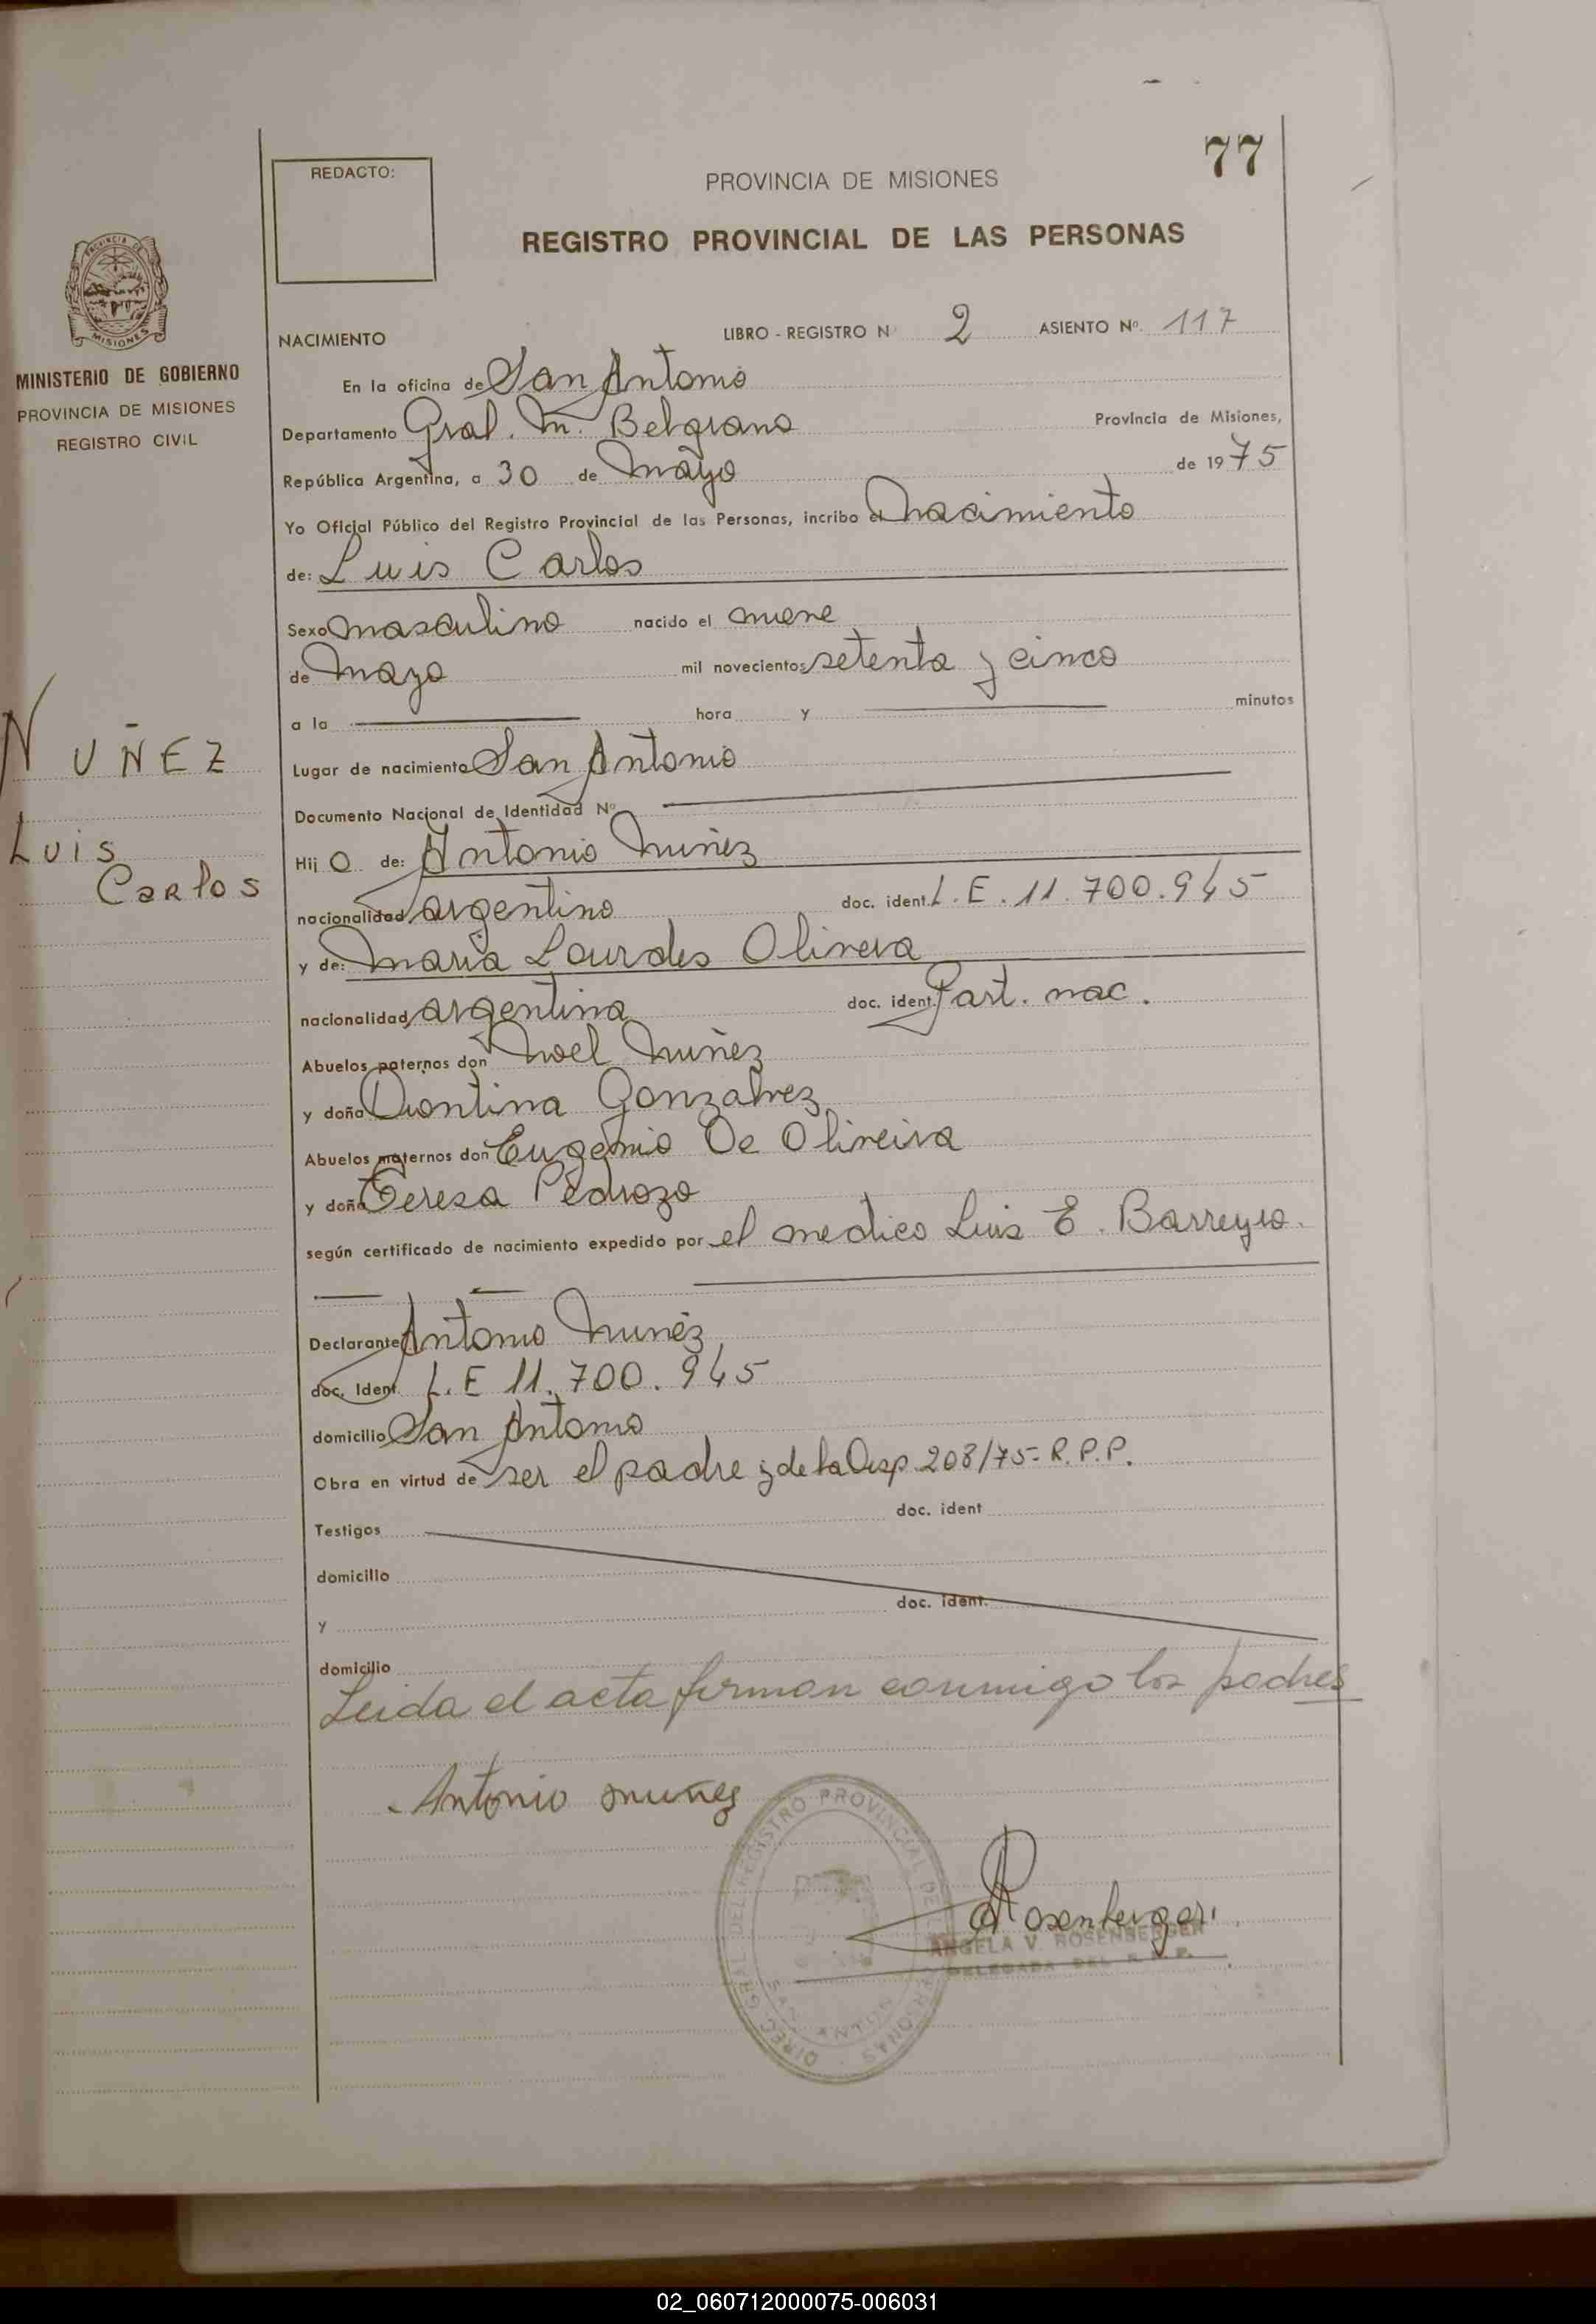 77
REDACTO:
PROVINCIA DE MISIONES
REGISTRO PROVINCIAL DE LAS PERSONAS
PROVINCIA DE
MISIONES
MINISTERIO DE GOBIERNO
PROVINCIA DE MISIONES
REGISTRO CIVIL
NACIMIENTO LIBRO - REGISTRO N° 2 ASIENTO Nº. 117
En la oficina de San Antonio
Departamento Gral. M. Belgrano Provincia de Misiones,
República Argentina, a 30 de Mayo de 1975
Yo Oficial Público del Registro Provincial de las Personas, incribo el nacimiento
de: Luis Carlos
Sexo masculino nacido el nueve
de Mayo mil novecientos setenta y cinco
a la hora y minutos
NUÑEZ
Luis
Carlos
Lugar de nacimiento San Antonio
Documento Nacional de Identidad Nº
Hij o de: Antonio Nuñez
nacionalidad argentino doc. ident. L.E. 11.700.945
y de: Maria Lourdes Olivera
nacionalidad argentina doc. ident. Part. nac.
Abuelos paternos don Noel Nuñez
y doña Gonzalvez
Abuelos maternos don Eugenio De Oliveira
y doña Teresa Pedrozo
según certificado de nacimiento expedido por el medico Luis E. Barreyro.
Declarante Antonio Nuñez
doc. Ident. L.E 11.700.945
domicilio San Antonio
Obra en virtud de ser el padre y de la Disp. 208/75-R.P.P.
Testigos doc. ident
domicilio
y doc. ident.
domicilio
Leida el acta firman conmigo los padres
Antonio nuñez
DIREC. GRAL DEL REGISTRO PROVINCIAL DE LAS PERSONAS
SAN ANTONIO
Rosenberger
ANGELA V. ROSENBERGER
DELEGADA DEL R.P.P.
02_060712000075-006031